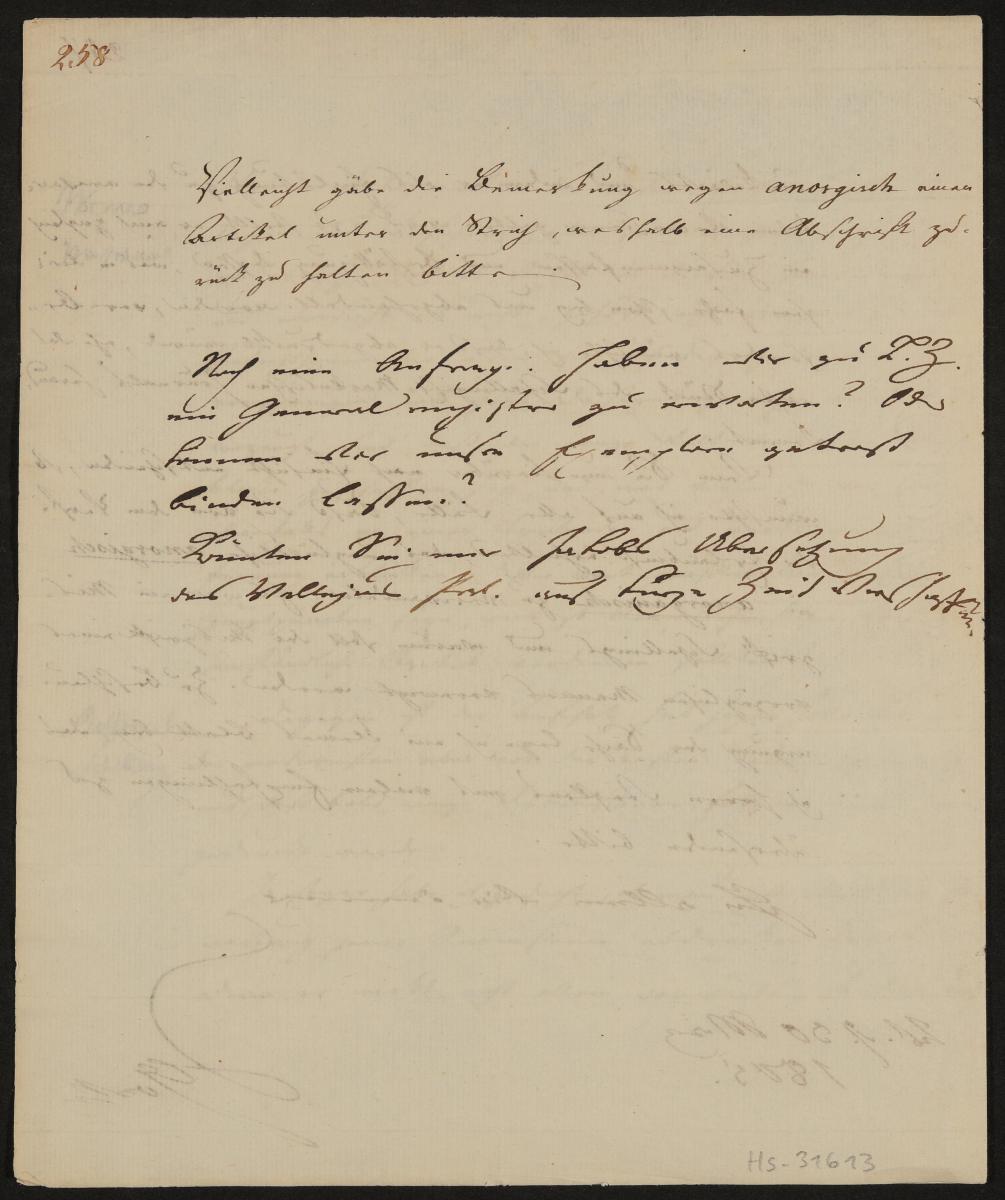 258
Vielleicht gäbe die Bemerkung wegen anorgisch einen
Artikel unter den Strich, weshalb eine Abschrift zu-
rück zu halten bitte.
Noch eine Anfrage: haben wir zu L. Z.
ein General register zu erwarten? Oder
können wir unsre Exemplare getrost
binden lassen?
Könnten Sie mir Jakobs Übersetzung
des Vellejus Pat. auf kurze Zeit verschaffen?
Hs-31613